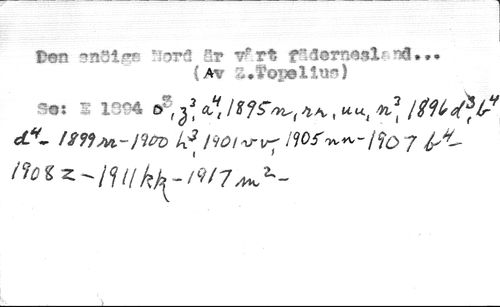 Den snöiga Nord är vårt fädernesland...
(Av Z.Topelius)
Se: E 1894 o³, z³, a⁴, 1895 n, rr, uu, n³, 1896 d³, b⁴
d⁴– 1899 rr–1900 h³, 1901 vv, 1905 nn–1907 b⁴–
1908 z–1911 kk–1917 m²–